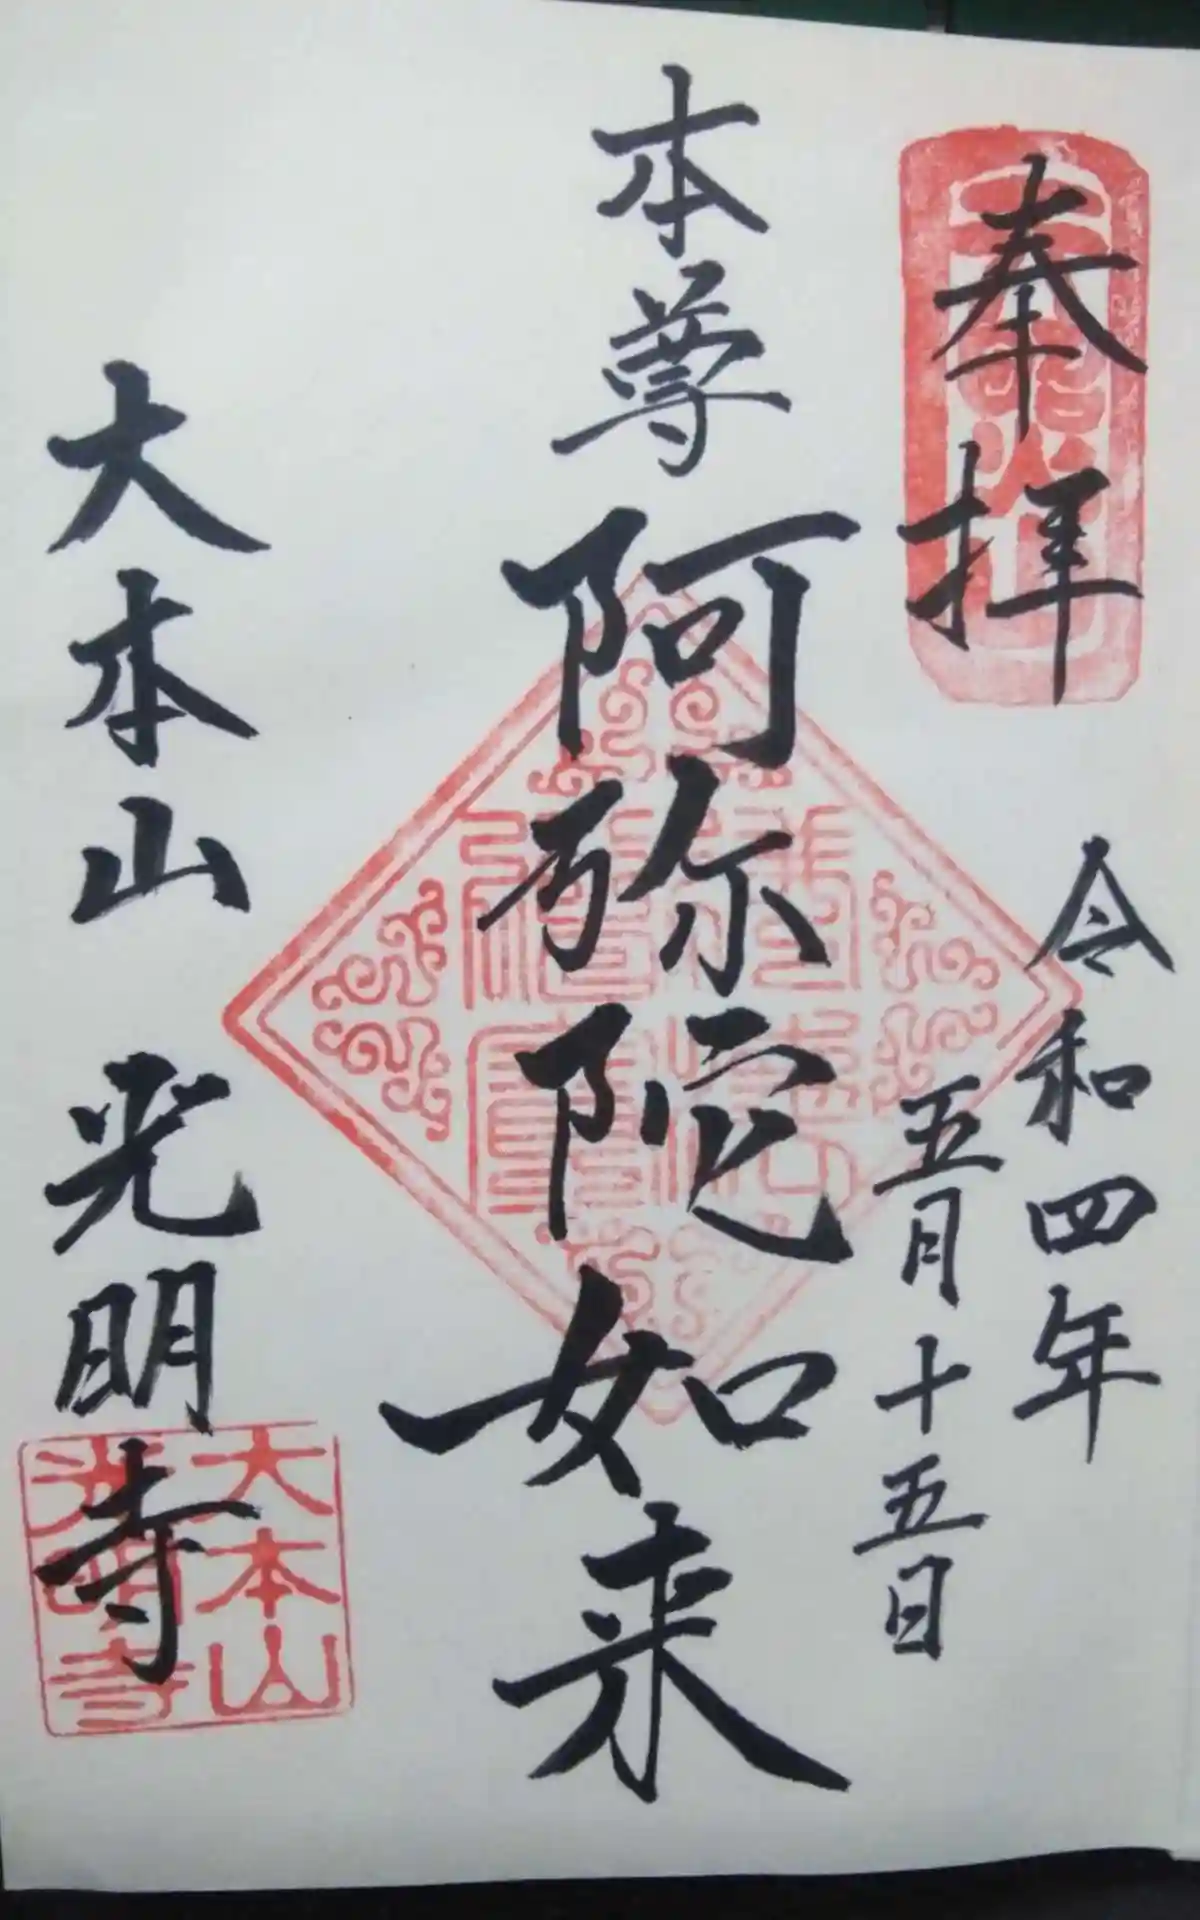 奉拝
令和四年
五月十五日
本尊 阿弥陀如来
大本山 光明寺
大本山
光明寺